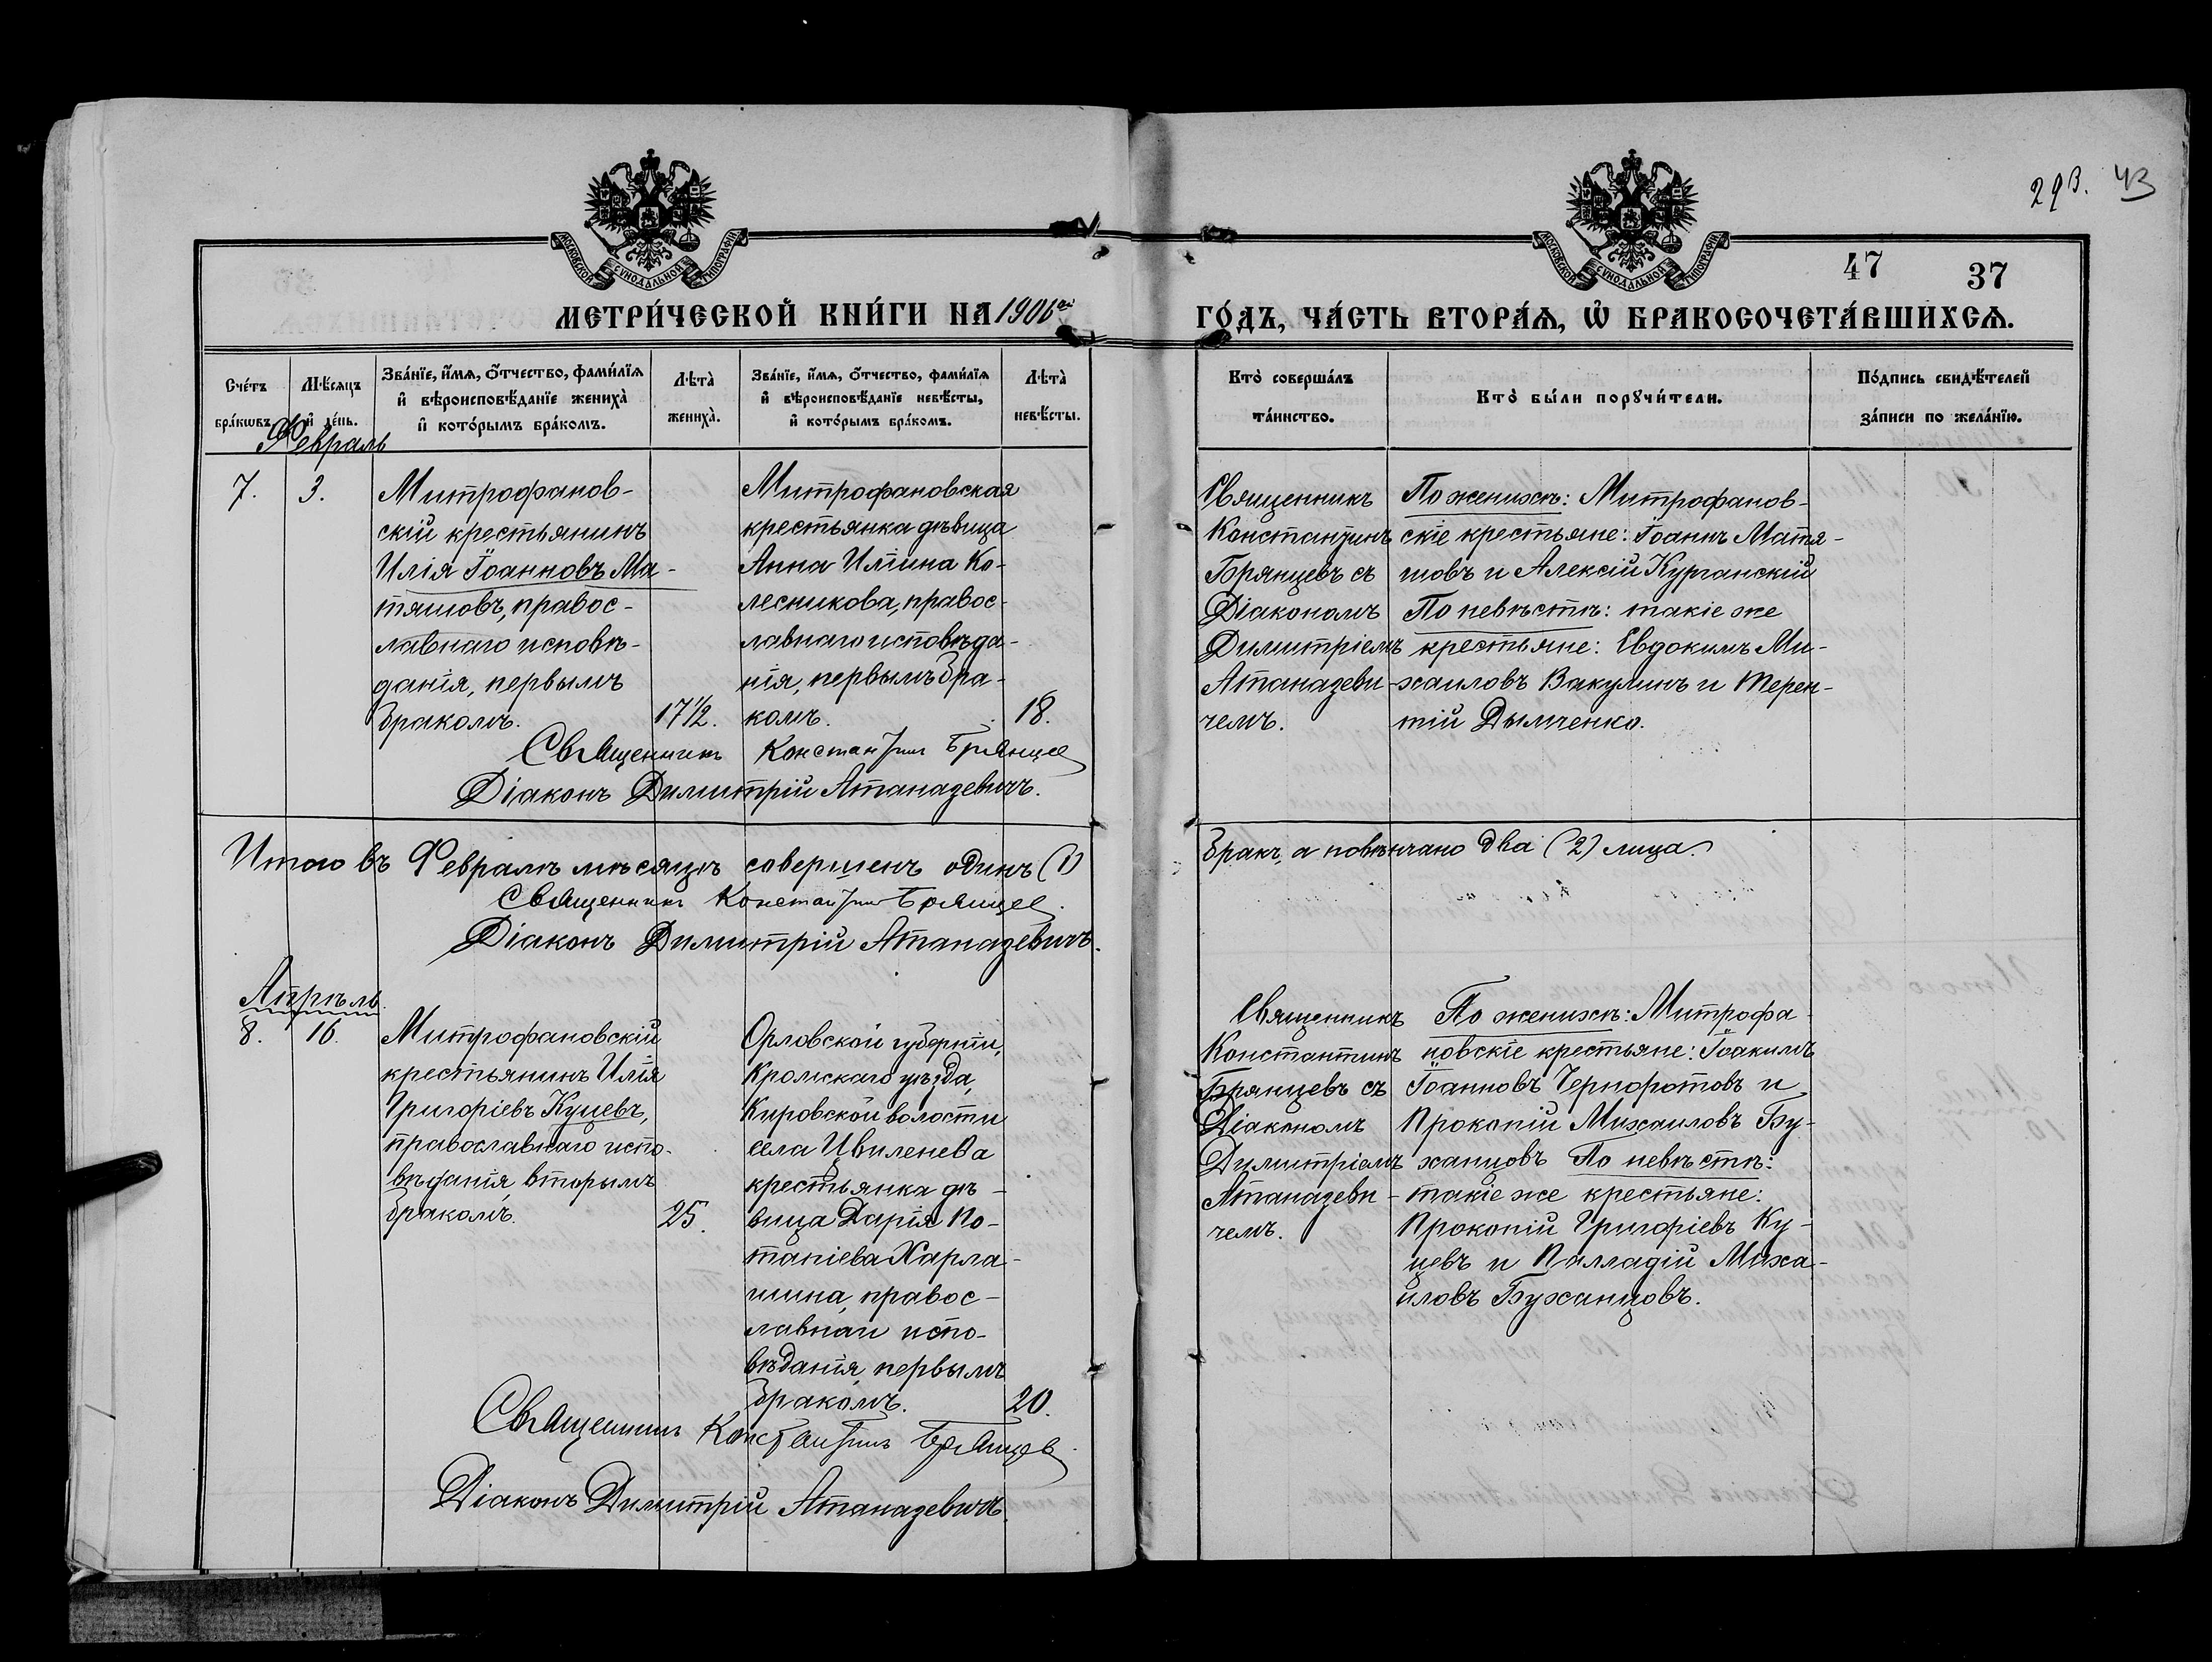 29в. 43
47 37
МОСКОВСКОЙ СѴНОДАЛЬНОЙ ТИПОГРАФІИ
МОСКОВСКОЙ СѴНОДАЛЬНОЙ ТИПОГРАФІИ
МЕТРИ́ЧЕСКОЙ КНИ́ГИ НА 1906ой
ГО́ДЪ, ЧА́СТЬ ВТОРА́Я, Ѡ БРАКОСОЧЕТА́ВШИХСЯ.
Сче́тъ
бра́кѡвъ.
Мѣ́сяцъ
и де́нь.
Зва́нїе, и́мя, о́тчество, фами́лїя
и вѣроисповѣ́данїе жениха̀
и кото́рымъ бра́комъ.
Лѣта̀
жениха̀.
Зва́нїе, и́мя, о́тчество, фами́лїя
и вѣроисповѣ́данїе невѣ́сты,
и кото́рымъ бра́комъ.
Лѣта̀
невѣ́сты.
Кто̀ соверша́лъ
та́инство.
Кто̀ бы́ли порꙋчи́тели.
По́дпись свидѣ́телей
за́писи по жела́нїю.
Февраль
7.
3.
Митрофанов-
скій крестьянинъ
Илія Іоанновъ Ма-
тяшовъ, правос-
лавнаго исповѣ-
данія, первымъ
бракомъ.
17½.
Митрофановская
крестьянка дѣвица
Анна Иліина Ко-
лесникова, правос-
лавнаго исповѣда-
нія, первымъ бра-
комъ.
18.
Священникъ
Константинъ
Брянцевъ съ
Діакономъ
Димитріемъ
Атаназеви-
чемъ.
По женихѣ: Митрофанов-
скіе крестьяне: Іоаннъ Матя-
шовъ и Алексій Курганскій
По невѣстѣ: такіе же
крестьяне: Евдокимъ Ми-
хаиловъ Вакулинъ и Терен-
тій Дымченко.
Священникъ Константинъ Брянцев
Діаконъ Димитрій Атаназевичъ.
Итого въ Февралѣ мѣсяцѣ совершенъ одинъ (1)
бракъ, а повѣнчано два (2) лица.
Священникъ Константин Брянцев.
Діаконъ Димитрій Атаназевичъ.
Апрѣль.
8.
16.
Митрофановскій
крестьянинъ Илія
Григоріевъ Куцевъ,
православнаго испо-
вѣданія, вторымъ
бракомъ.
25.
Орловской губерніи,
Кромскаго уѣзда,
Кировской волости
села Цвиленева
крестьянка дѣ-
вица Дарія По-
тапіева Харла-
шина, правос-
лавнаи испо-
вѣданія, первымъ
бракомъ.
20.
Священникъ
Константинъ
Брянцевъ съ
Діакономъ
Димитріемъ
Атаназеви-
чемъ.
По женихѣ: Митрофа-
новскіе крестьяне: Іоакимъ
Іоанновъ Чернофотовъ и
Прокопій Михаиловъ Бу-
ханцовъ По невѣстѣ:
такіе же крестьяне:
Прокопій Григоріевъ Ку-
цевъ и Палладій Миха-
иловъ Буханцовъ.
Священникъ Константинъ Брянцев
Діаконъ Димитрій Атаназевичъ.